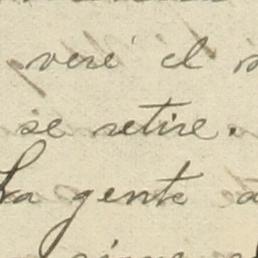 veré el
se retire.
La gente